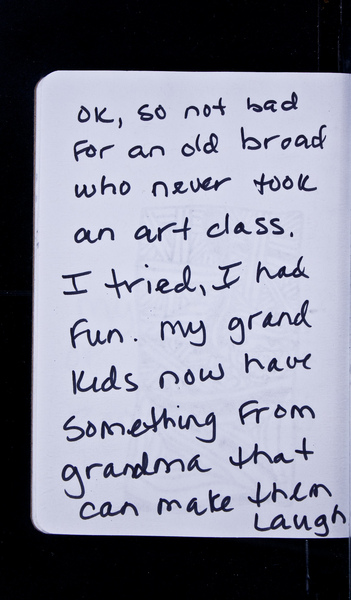 OK, so not bad
For an old broad
who never took
an art class.
I tried, I had
Fun. My grand
kids now have
something From
grandma that
can make them
Laugh